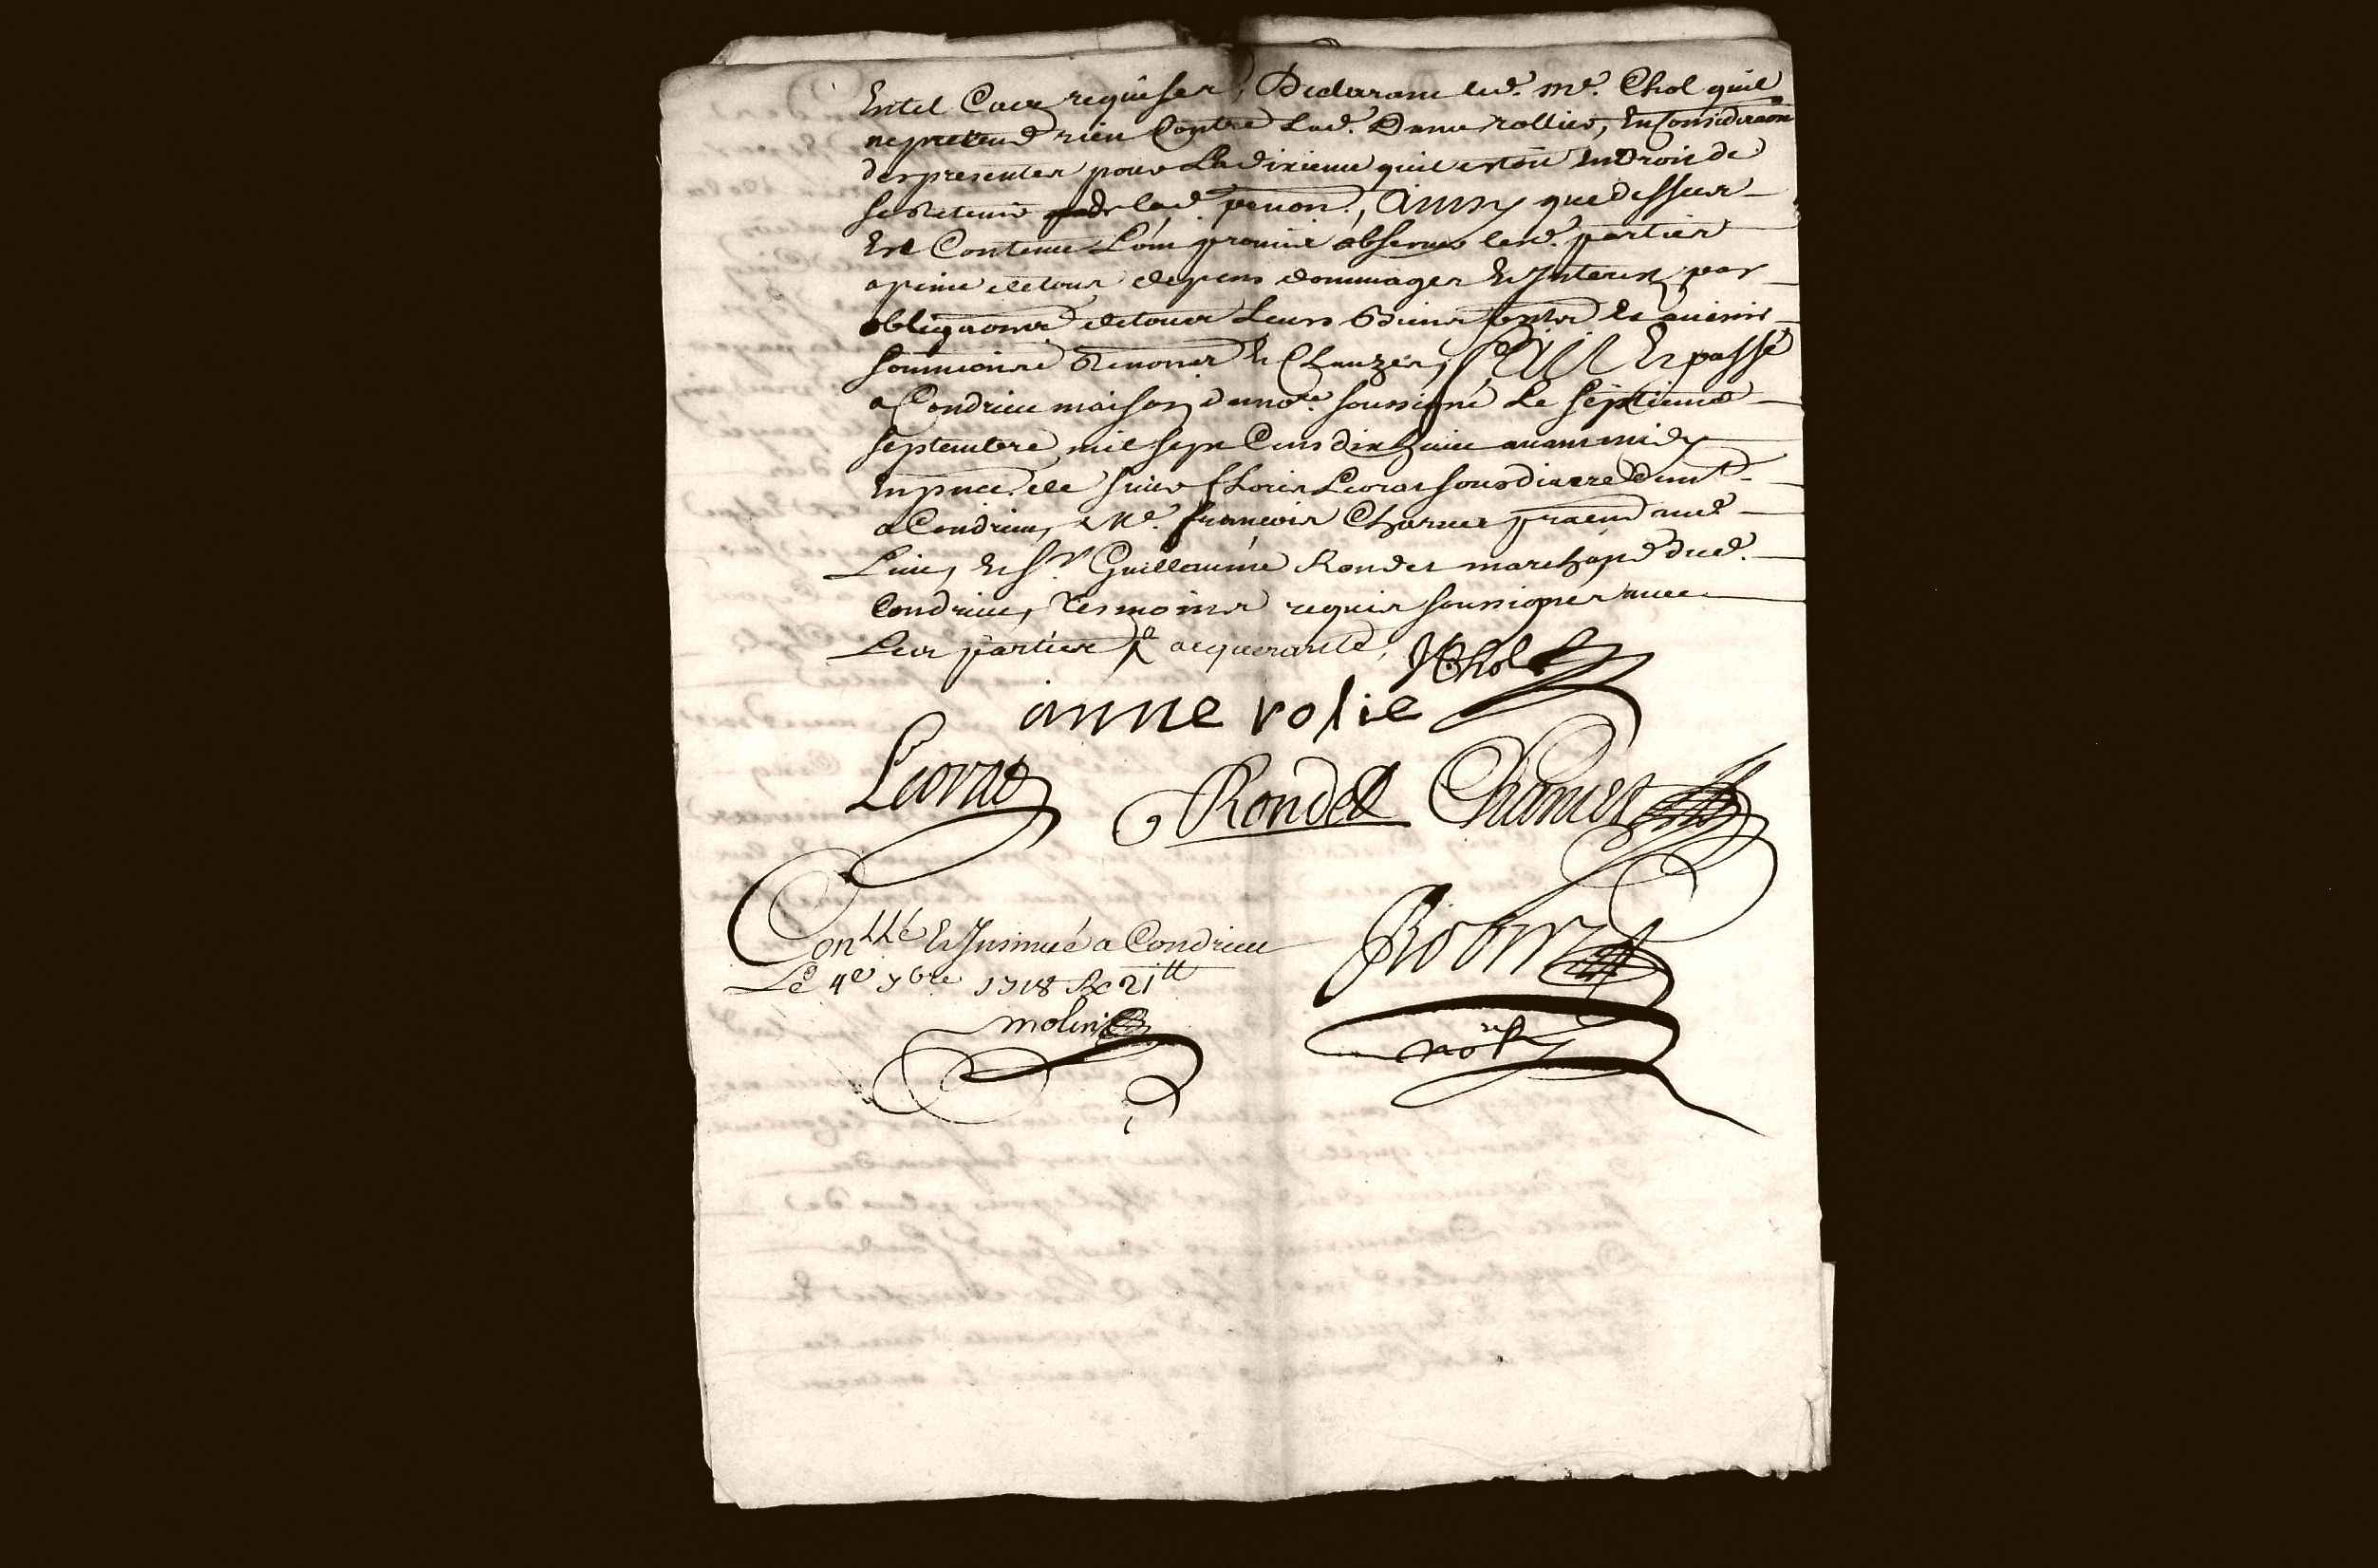 En tel Cas requises, Declarant led. me. Chol quil
ne pretend rien Contre Lad. Dame rollier, En Consideraon
des presentes pour La dixieme quil estoit En Droit de
se Retenir lad. pention, Ainsy que dessus
Est Contenu L'ont promis observer lesd. parties
a peine de tous depens dommages Et Interest, par
obligaons de tous Leurs Biens
soumions Renons Et Clauzes, Fait Et passé
a Condrieu maison du nore. soussigné Le septieme
septembre mil sept Cens dix huit avant midy
En pnce. de sieur Leorat sousdiacre
a Condrieu, Me. françois Charmet praticien aud.
Lieu, Et Sr. Guillaume Rondet marchand dud.
Condrieu, Tesmoins requis soussignes avec
Les parties acquerante,
JChol
anne rolie
Leorat Rondet Charmet
Conllé Et Insinué a Condrieu
Le 7bre 1718 Rx 21tt
molin